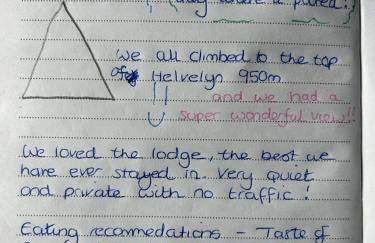 We all climbed to the top
of Helvelyn 950m
and we had a
super wonderful view!!
We loved the lodge, the best we
have ever stayed in. Very quiet
and private with no traffic!
Eating recommedations – Taste of